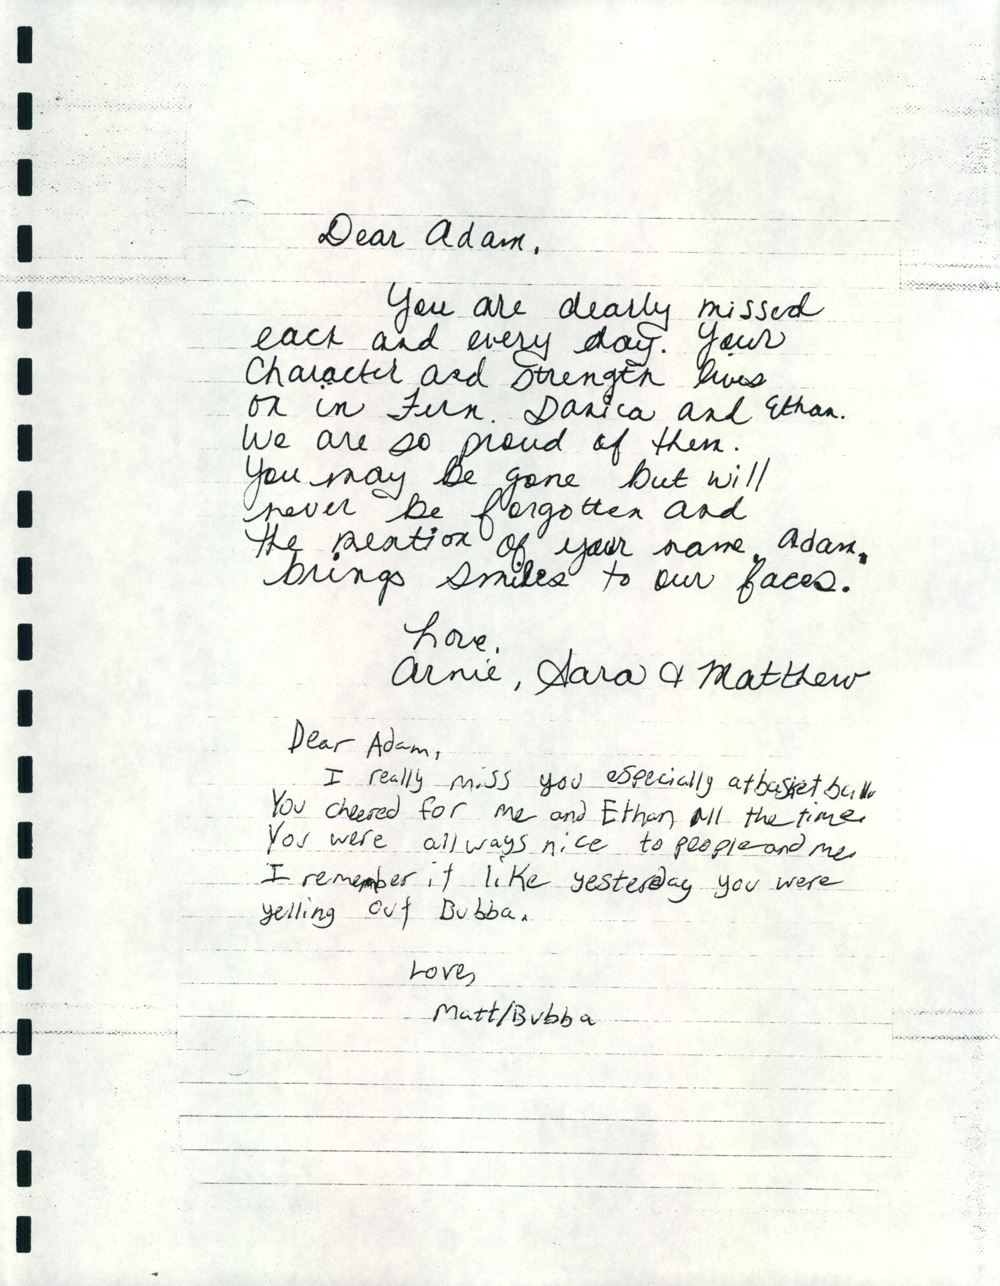 Dear Adam,
You are dearly missed
each and every day. Your
Character and Strength lives
on in Fern. Danica and Ethan.
We are so proud of them.
You may be gone but will
never be forgotten and
the mention of your name, Adam,
brings smiles to our faces.
Love,
Arnie, Sara & Matthew
Dear Adam,
I really miss you especially at basket ball
You cheered for me and Ethan all the time.
You were all ways nice to people and me.
I remember it like yesterday you were
yelling out Bubba.
Love,
Matt/Bubba